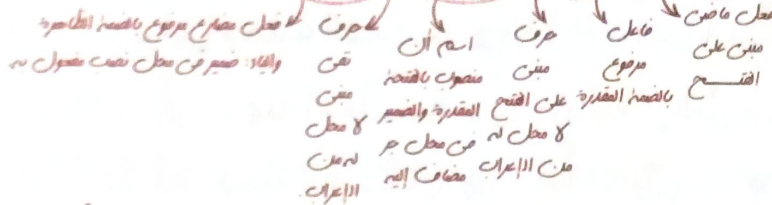 فعل ماضى
مبنى على
الفتح
فاعل
مرفوع
بالضمة المقدرة
حرف
مبنى
على الفتح
لا محل له
من الإعراب
اسم أن
منصوب بالفتحة
المقدرة والضمير
فى محل جر
مضاف إليه
حرف
نفى
مبنى
لا محل
له من
الإعراب
فعل مضارع مرفوع بالضمة الظاهرة
والياء: ضمير فى محل نصب مفعول به